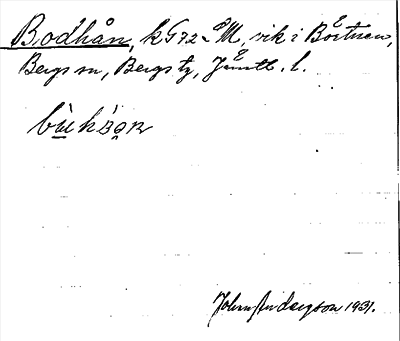 Bodhån, k G 72 SM, vik i Börtnen,
Bergs sn, Bergs tg, Jämtl. l.
John Anderzson 1931.